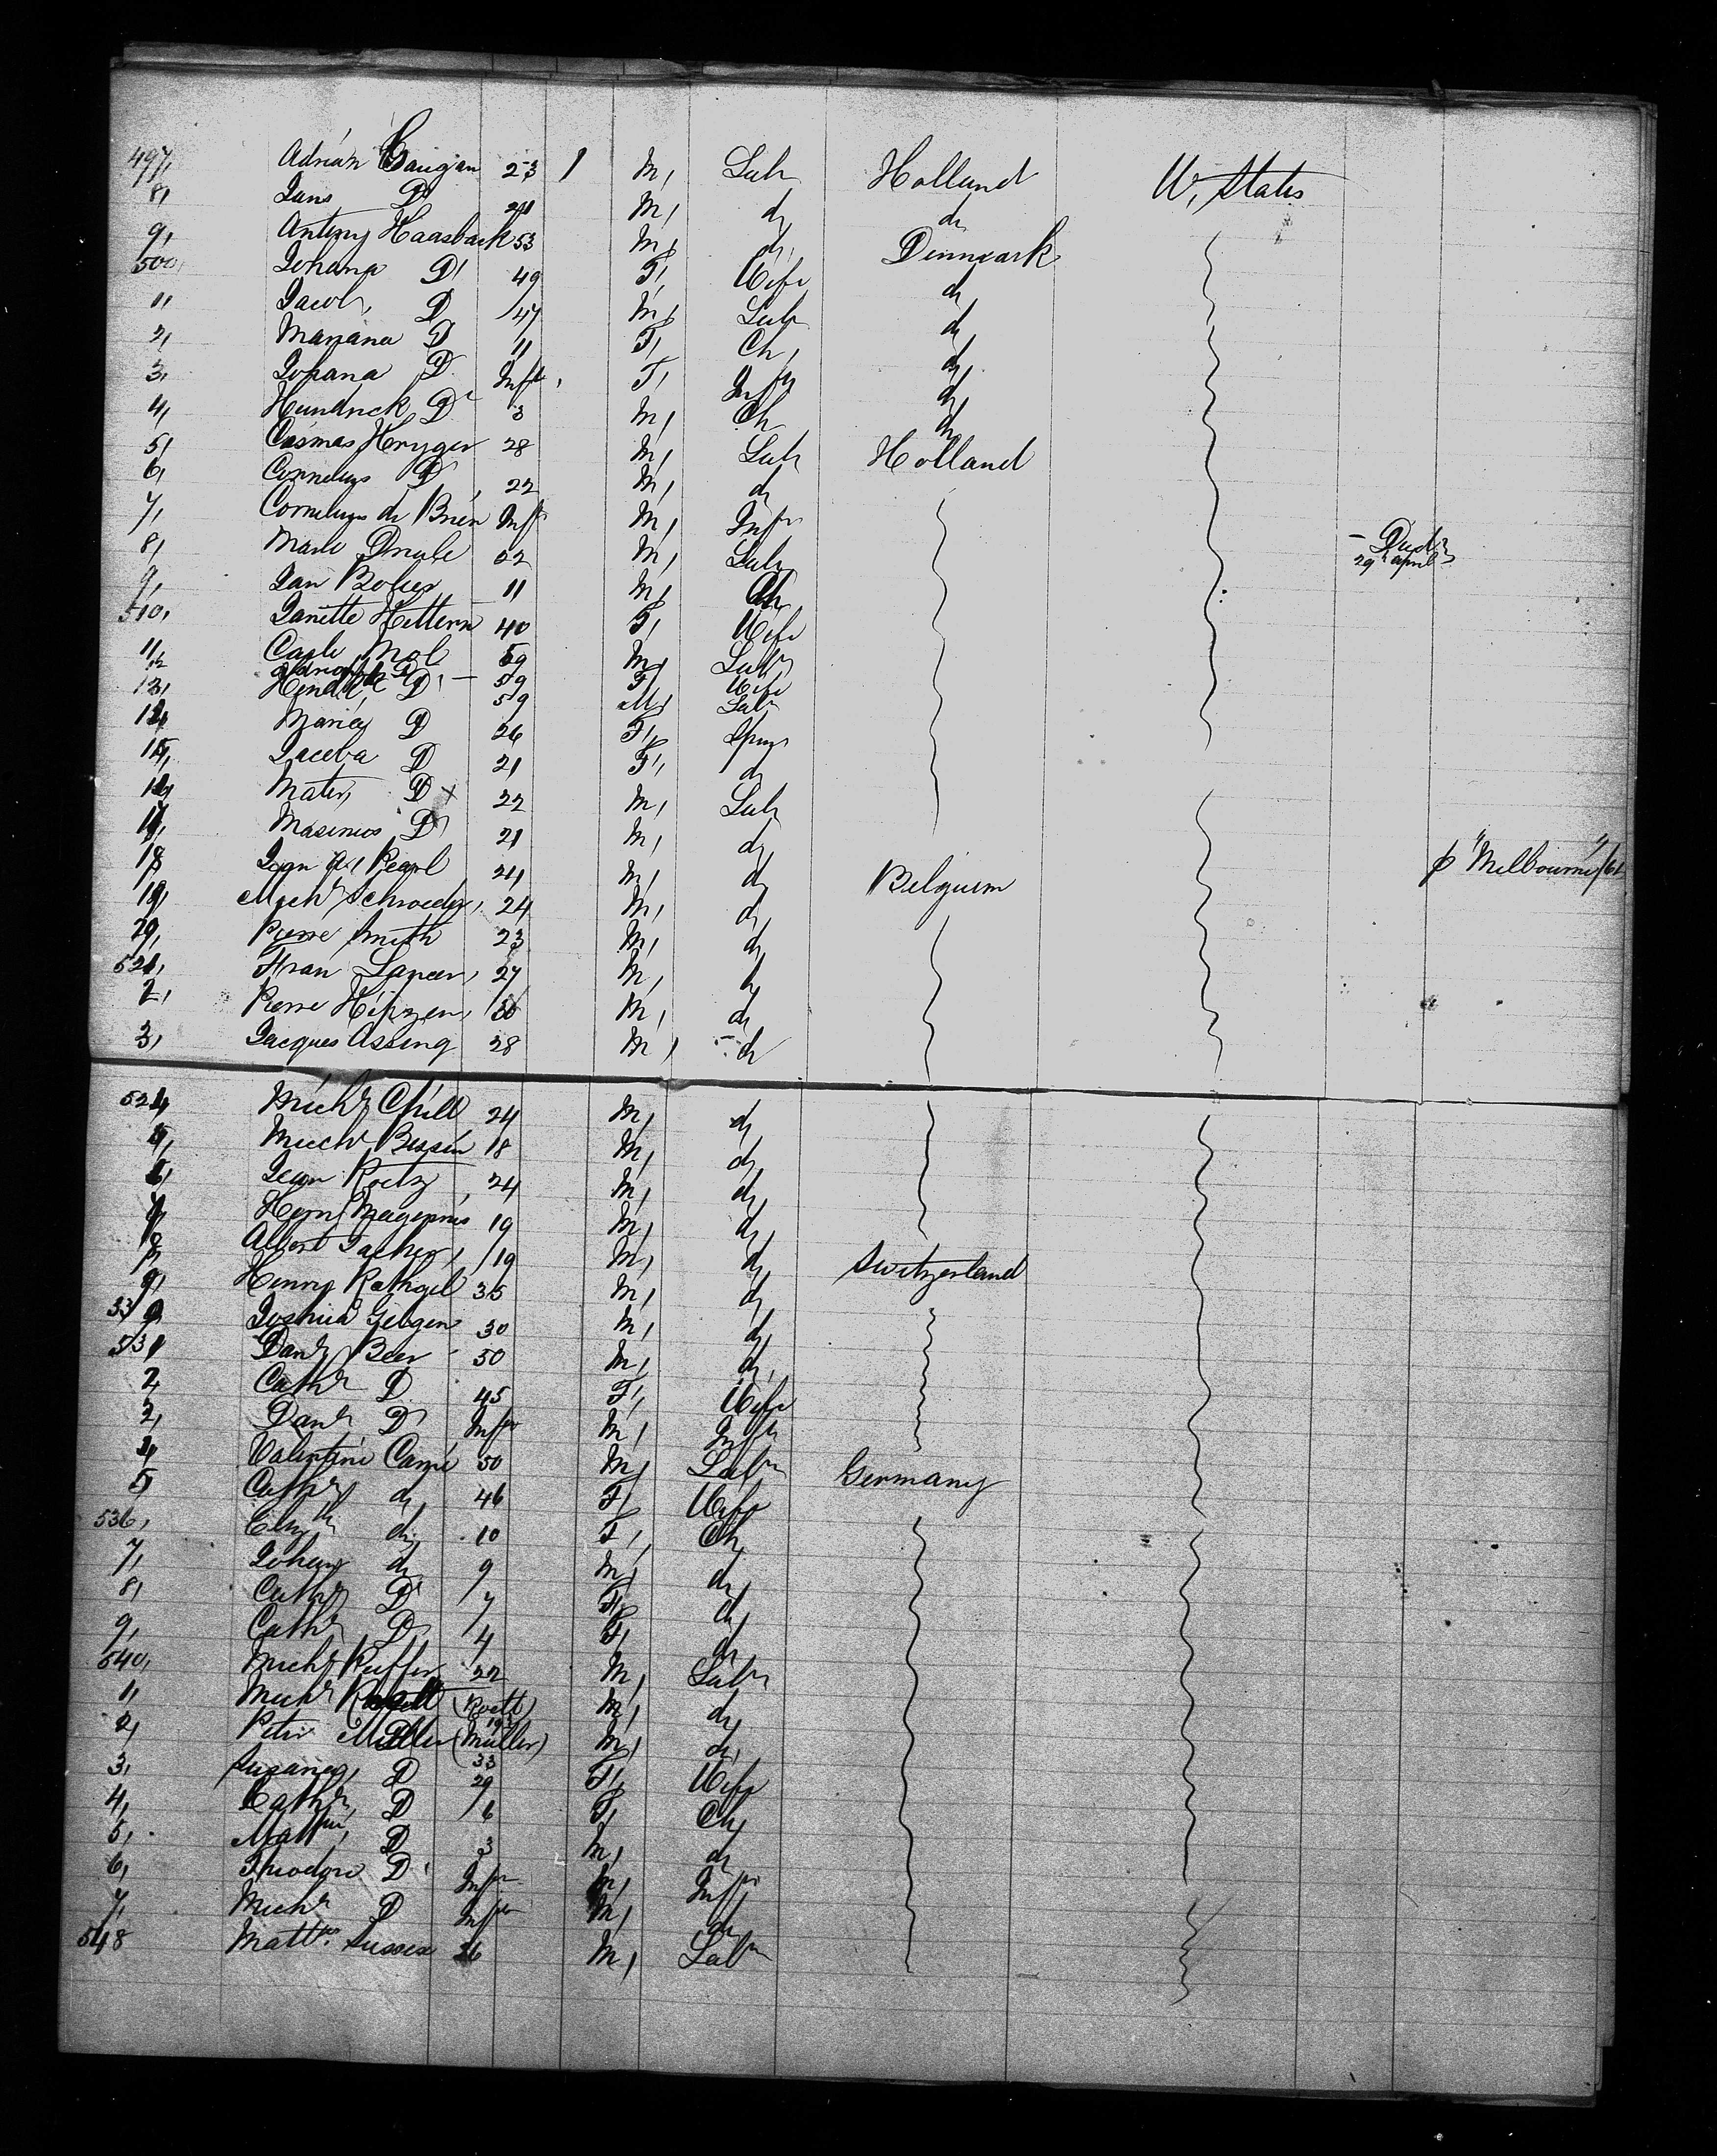 497, Adrian Gaugan 23 1 M, Labr Holland U, States
8, Jans Do 24 M, do do
9, Antony Haasback 53 M, do, Dennmark
500, Johana Do 49 F, Wife do
1, Jacob, D 17 M, Labr do
2, Mariana D 11 F, Ch, do,
3, Johana D. Inft, F, Inft do,
4, Hendrick Do 3 M, Ch do
5, Cosmas Heryger 28 M, Labr Holland
6, Cornelius Do, 22 M, do
7, Cornelius de Brien Inft M, Inft
8, Marli 52 M, Labr – Died 29th april
9, Jan Bolier 11 M, Ch,
510, Janette Hettern 40 F, Wife
11, Carli Mol 59 M, Labr
12 D – 59 F, Wife
13, Hendk, D. 59 M, Labr
14, Maria D 26 F, Spinr
15, Jaceba D 21 F, do
16, Mater, D + 22 M, Labr
17, Masinios Do 21 M, do,
18 Jean Pearl 24, M, do Belgium p "Melbourne"/61
19, Michl Schroeder, 24 M, do,
20, Pierre Smith 23 M, do
521, Fran Lancer, 27 M, do
2, Pierre Hipzen, 30 M, do
3, Jacques Assing 28 M, do
524, Michl Chill 24 M, do,
5, Michl Bessen 18 M, do,
6, Jean Roetz, 24 M, do,
7, Heny 19 M, do,
8, Albert Jacher, 19 M, do, Switzerland
9, Henry Rathgel 35 M, do,
530, Joshua Geugen 30 M, do,
531 Danl Beer 50 M, do,
2, Cathr D 45 F, Wife
3, Danl Do Inft M, Inft
4, Valentine Camé 50 M, Labr Germany
5 Cathr do, 46 F, Wife
536, Elizth do, 10 F, Ch,
7, Johan do 9 M, do,
8, Cathr Do 7 F, do,
9, Cathr D 4 F, do
540, Michl Kuffer 22 M, Labr
1, Michl (Roett) 19 M, do,
2, Peter Miller (Müller) 33 M, do,
3, Susana, D 29 F, Wife
4, Cathr, D 6 F, Ch,
5, D 3 M, do
6, Theodore D. Inft M, Inft
7, Michl D Inft M, do
548 Matths. Susses 26 M, Labr